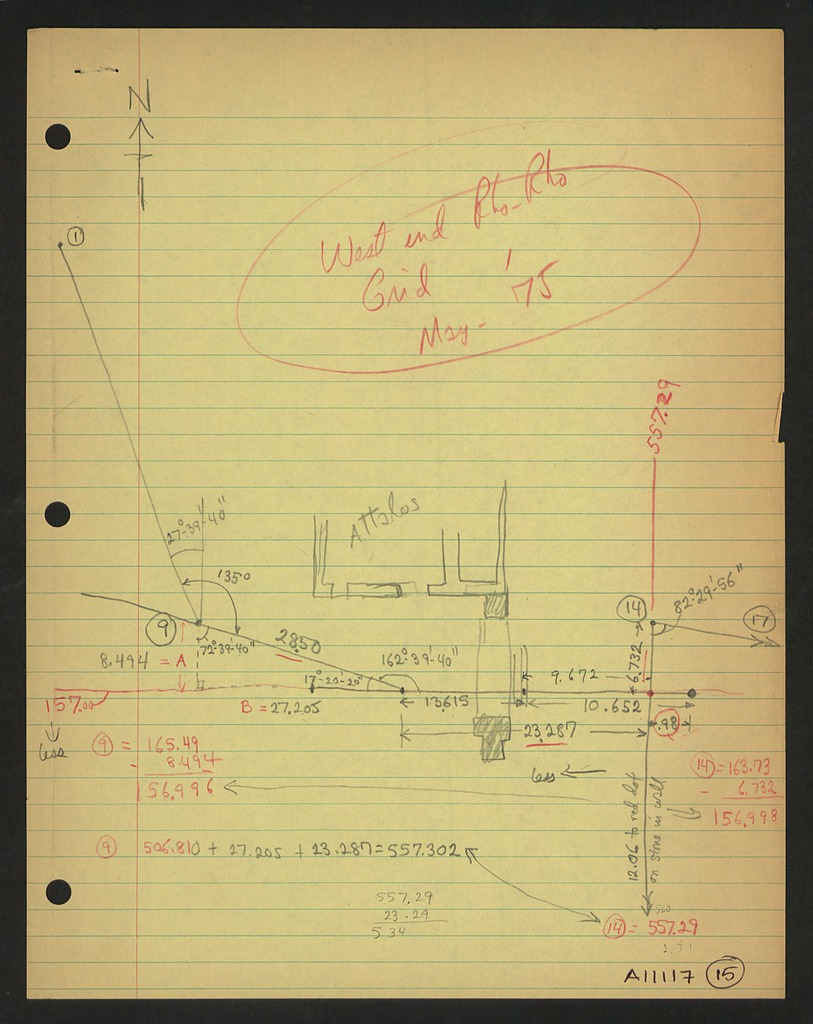 N
①
West end Rho-Rho
Grid '75
May-
557.29
27°-39'-40"
Attalos
1350
⑨
72°-39'-40"
28.50
162°-39'-40"
⑭
82°-29'-56"
⑰
8.494 = A
17°-20-20"
9.672
6.732
157.00
B = 27.205
13.615
10.652
less
23.287
.98
⑨ = 165.49
- 8.494
156.996
less
⑭ = 163.73
- 6.732
156.998
12.06 to red dot
on stone in wall
⑨ 506.810 + 27.205 + 23.287 = 557.302
557.29
23.29
5 34
560
⑭ = 557.29
2.71
A11117 ⑮